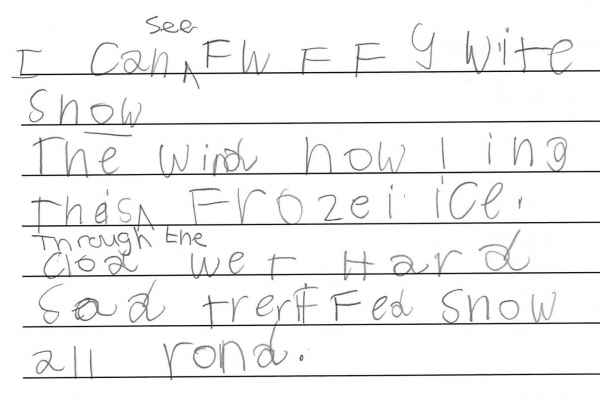 see
I Can ^ FW F F y Wite
snow
The wind how l ing
theis ^ Frozei ice.
Through the
clod wet Hard
Sad trerfFed snow
all rond.